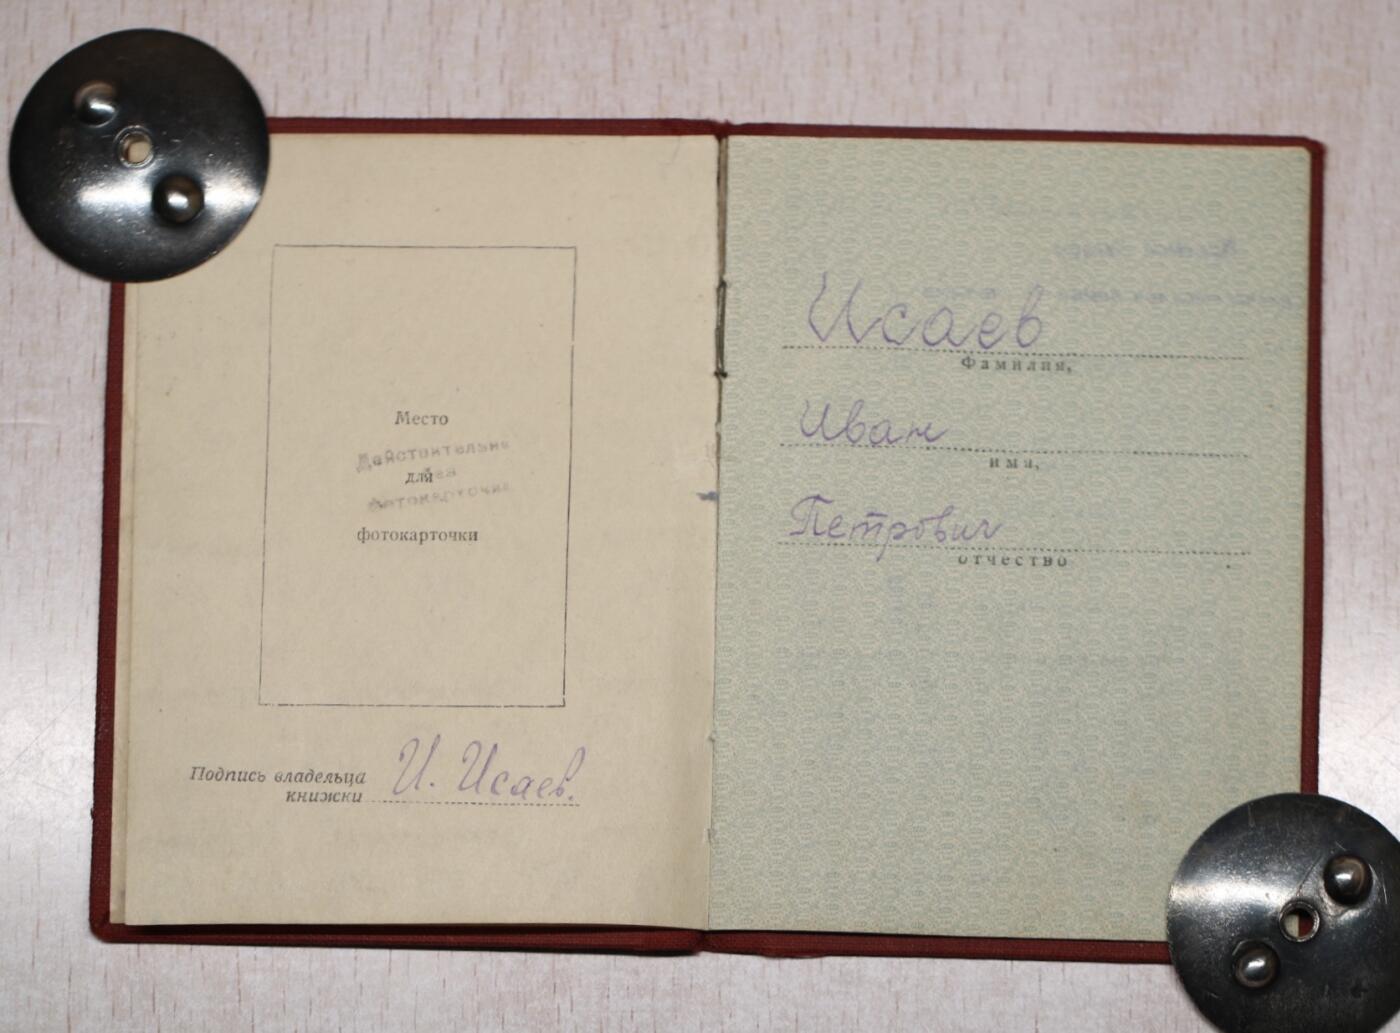 Место
Действительно
без
фотокарточки
для
фотокарточки
Подпись владельца
книжки
И. Исаев.
Исаев
Фамилия,
Иван
имя,
Петрович
отчество